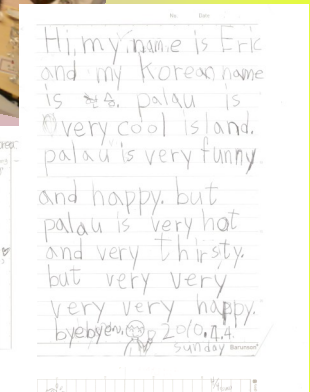 No. Date
Hi, my name is Eric
and my Korean name
is palau is
very cool island.
palau is very funny
and happy. but
palau is very hot
and very thirsty.
but very very
very very happy.
byebye 2010.7.4.
sunday Barunson